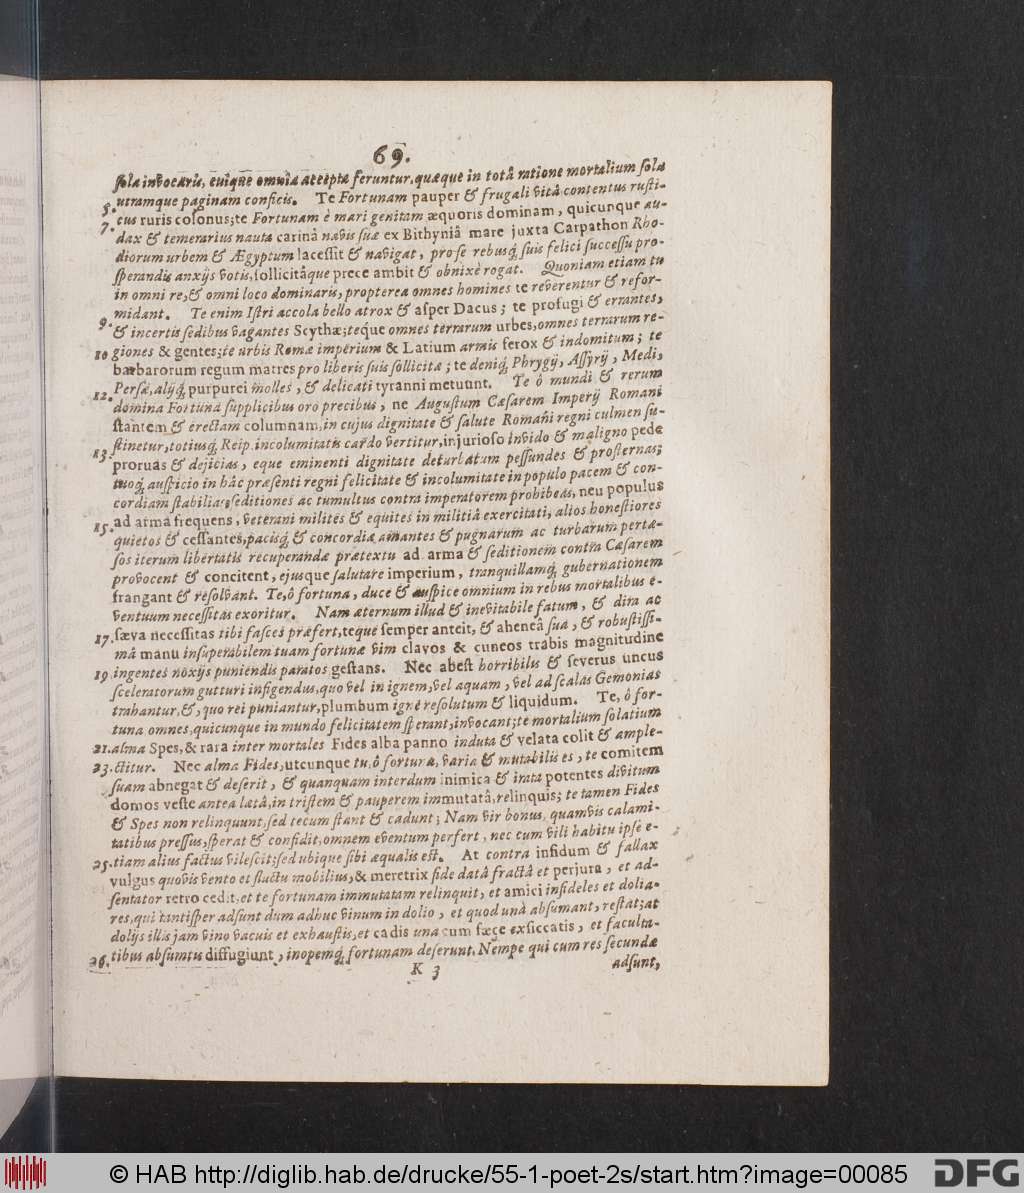 69.
sola invocaris, cuique omnia accepta feruntur, quæque in totâ ratione mortalium sola
utramque paginam conficis. Te Fortunam pauper & frugali vitâ contentus rusti-
5. cus ruris colonus; te Fortunam è mari genitam æquoris dominam, quicunque au-
7. dax & temerarius nauta carinâ navis suæ ex Bithyniâ mare juxta Carpathon Rho-
diorum urbem & Ægyptum lacessit & navigat, pro se rebusq́ suis felici successu pro-
sperandis anxijs votis, sollicitâque prece ambit & obnixè rogat. Quoniam etiam tu
in omni re, & omni loco dominaris, propterea omnes homines te reverentur & refor-
midant. Te enim Istri accola bello atrox & asper Dacus; te profugi & errantes,
9. & incertis sedibus vagantes Scythæ; teque omnes terrarum urbes, omnes terrarum re-
10 giones & gentes; te urbis Romæ imperium & Latium armis ferox & indomitum; te
barbarorum regum matres pro liberis suis sollicitæ; te deniq́, Phrygij, Assyrij, Medi,
Persæ, alijq́ purpurei molles, & delicati tyranni metuunt. Te ô mundi & rerum
12. domina Fortuna supplicibus oro precibus, ne Augustum Cæsarem Imperij Romani
stantem & erectam columnam, in cujus dignitate & salute Romani regni culmen su-
stinetur, totiusq́, Reip. incolumitatis cardo vertitur, injurioso invido & maligno pede
13. proruas & dejicias, eque eminenti dignitate deturbatum pessundes & prosternas;
tuoq́, auspicio in hâc præsenti regni felicitate & incolumitate in populo pacem & con-
cordiam stabilias, seditiones ac tumultus contra imperatorem prohibeas, neu populus
ad arma frequens, veterani milites & equites in militiâ exercitati, alios honestiores
15. quietos & cessantes, pacisq́, & concordiæ amantes & pugnarum ac turbarum pertæ-
sos iterum libertatis recuperandæ prætextu ad arma & seditionem contra Cæsarem
provocent & concitent, ejusque salutare imperium, tranquillamq́, gubernationem
frangant & resolvant. Te, ô fortuna, duce & auspice omnium in rebus mortalibus e-
ventuum necessitas exoritur. Nam æternum illud & inevitabile fatum, & dira ac
17. sæva necessitas tibi fasces præfert, teque semper anteit, & aheneâ sua, & robustissi-
mâ manu insuperabilem tuam fortunæ vim clavos & cuneos trabis magnitudine
19 ingentes noxijs puniendis paratos gestans. Nec abest horribilis & severus uncus
sceleratorum gutturi infigendus, quo vel in ignem, vel aquam, vel ad scalas Gemonias
trahantur, &, quo rei puniantur, plumbum igne resolutum & liquidum. Te, ô for-
tuna omnes, quicunque in mundo felicitatem sperant, invocant; te mortalium solatium
21. alma Spes, & rara inter mortales Fides alba panno induta & velata colit & ample-
23. ctitur. Nec alma Fides, utcunque tu, ô fortuna, varia & mutabilis es, te comitem
suam abnegat & deserit, & quanquam interdum inimica & irata potentes divitum
domos veste antea lætâ, in tristem & pauperem immutatâ, relinquis; te tamen Fides
& Spes non relinquunt, sed tecum stant & cadunt; Nam vir bonus, quamvis calami-
tatibus pressus, sperat & confidit, omnem eventum perfert, nec cum vili habitu ipse e-
25. tiam alius factus vilescit; sed ubique sibi æqualis est. At contra infidum & fallax
vulgus quovis vento et fluctu mobilius, & meretrix fide datâ fractâ et perjura, et ad-
sentator retro cedit, et te fortunam immutatam relinquit, et amici infideles et dolia-
res, qui tantisper adsunt dum adhuc vinum in dolio, et quod unà absumant, restat; at
dolijs illis jam vino vacuis et exhaustis, et cadis una cum fæce exsiccatis, et faculta-
26. tibus absumtis diffugiunt, inopemq́, fortunam deserunt. Nempe qui cum res secundæ
K 3
adsunt,
© HAB http://diglib.hab.de/drucke/55-1-poet-2s/start.htm?image=00085
DFG